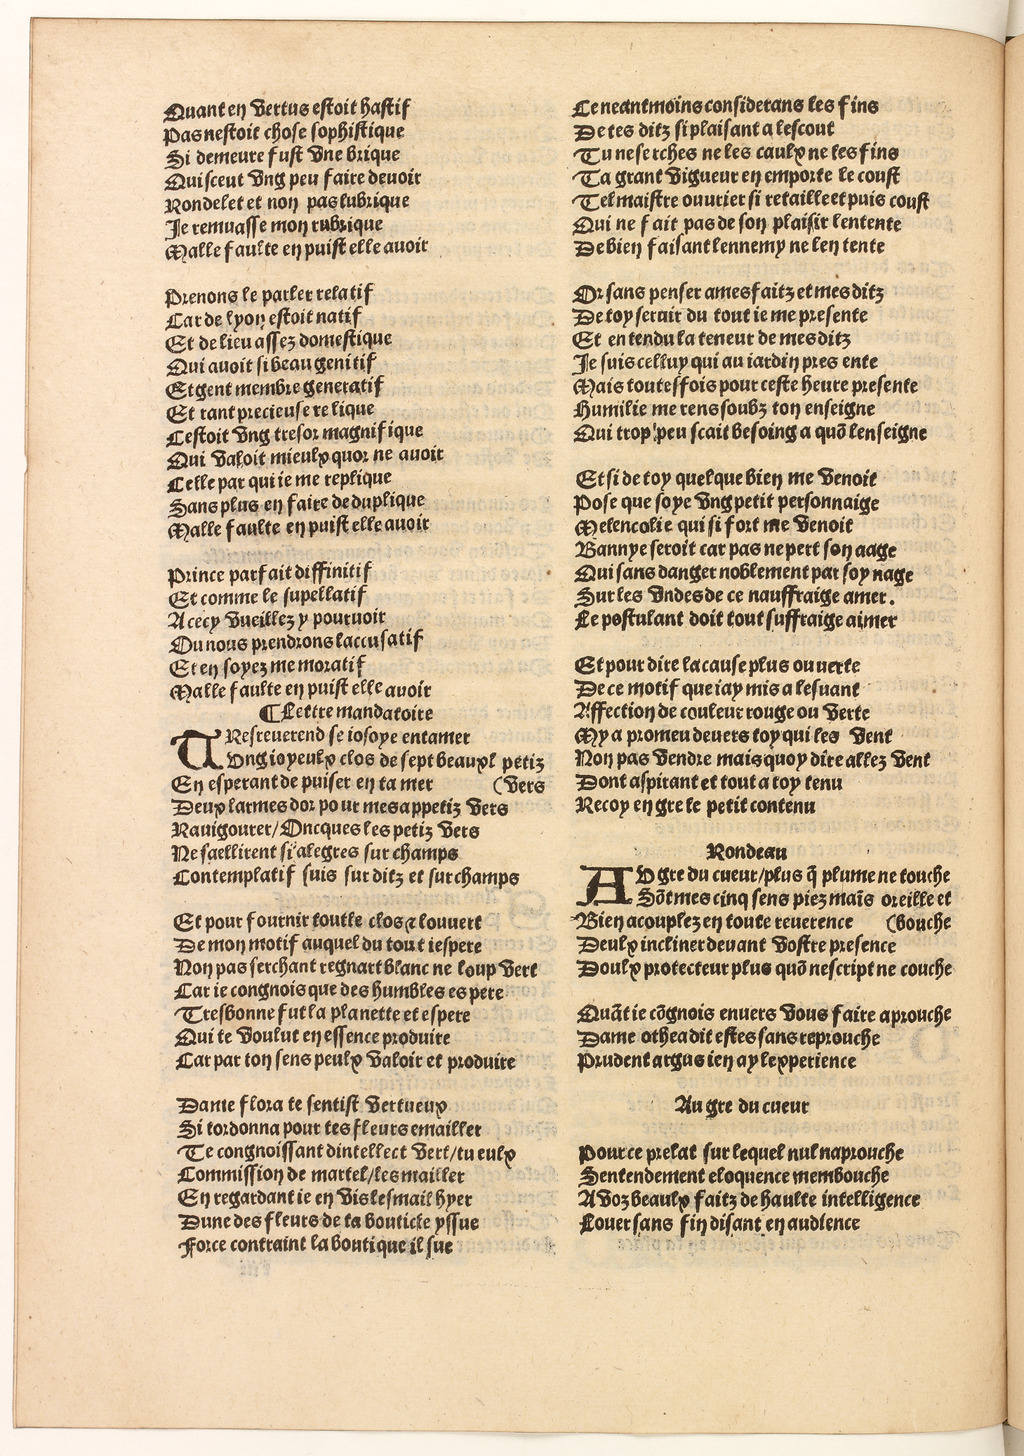 Quant en vertus estoit hastif
Pas nestoit chose sophistique
Si demeure fust vne brique
Qui sceut vng peu faire deuoir
Rondelet et non pas lubrique
Je remuasse mon rubrique
Malle faulte en puist elle auoir
Prenons le parler relatif
Car de lyon estoit natif
Et de lieu assez domestique
Qui auoit si beau genitif
Et gent membre generatif
Et tant precieuse relique
Cestoit vng tresor magnifique
Qui valoit mieulx quor ne auoir
Celle par qui ie me replique
Sans plus en faire de duplique
Malle faulte en puist elle auoir
Prince parfait diffinitif
Et comme le supellatif
A cecy vueillez y pouruoir
Ou nous prendrons laccusatif
Et en soyez memoratif
Malle faulte en puist elle auoir
¶ Lettre mandatoire
TResreuerend se iosoye entamer
Vng ioyeulx clos de sept beaulx petiz
En esperant de puiser en ta mer (vers
Deux larmes dor pour mes appetiz vers
Rauigourer/Oncques les petiz vers
Ne saellirent si alegres sur champs
Contemplatif suis sur ditz et sur champs
Et pour fournir toutle clos & louuert
De mon motif auquel du tout iespere
Non pas serchant regnart blanc ne loup vert
Car ie congnois que des humbles es pere
Tresbonne fut la planette et espere
Qui te voulut en essence produire
Car par ton sens peulx valoir et produire
Dame flora te sentist vertueux
Si tordonna pour tes fleurs emailler
Te congnoissant dintellect vert/tu eulx
Commission de martel/les mailler
En regardant ie en vis lesmail hyer
Dune des fleurs de ta boutiche yssue
Force contraint la boutique il sue
Ce neantmoins considerans les fins
De tes ditz si plaisant a lescout
Tu ne serches ne les caulx ne les fins
Ta grant vigueur en emporte le coust
Tel maistre ouurier si retaille et puis coust
Qui ne fait pas de son plaisir lentente
De bien faisant lennemy ne len tente
Or sans penser a mes faitz et mes ditz
De toy seruir du tout ie me presente
Et entendu la teneur de mes ditz
Je suis celluy qui au iardin pres ente
Mais toutesfois pour ceste heure presente
Humilie me rens soubz ton enseigne
Qui trop peu scait besoing a quõ lenseigne
Et si de toy quelque bien me venoit
Pose que soye vng petit personnaige
Melencolie qui si fort me venoit
Bannye seroit car pas ne pert son aage
Qui sans danger noblement par soy nage
Sur les vndes de ce nauffraige amer.
Le postulant doit tout suffraige aimer
Et pour dire la cause plus ouuerte
De ce motif que iay mis a lesuant
Affection de couleur rouge ou verte
My a promeu deuers toy qui les vent
Non pas vendre mais quoy dire allez vent
Dont aspirant et tout a toy tenu
Recoy en gre le petit contenu
Rondeau
AV gre du cueur/plus q̃ plume ne touche
Sõt mes cinq sens piez maīs oreille et
Bien acouplez en toute reuerence (bouche
Deulx incliner deuant vostre presence
Doulx protecteur plus quõ nescript ne couche
Quãt ie cõgnois enuers vous faire aprouche
Dame othea dit estes sans reprouche
Prudent argus ien ay lexperience
Au gre du cueur
Pour ce prelat sur lequel nul naprouche
Sentendement eloquence membouche
A voz beaulx faitz de haulte intelligence
Louer sans fin disant en audience